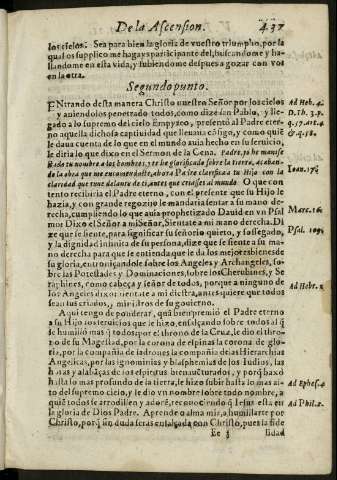 De la Ascension. 437
los cielos. Sea para bien la gloria de vuestro triumpho, por la
qual os supplico me hagays participante del, buscandome y ha-
llandome en esta vida, y subiendome despues a gozar con vos
en la otra.
Segundo punto.
ENtrando desta manera Christo nuestro Señor por los cielos
y aviendolos penetrado todos, como dize san Pablo, y lle-
gado a lo supremo del cielo Empyreo, presentò al Padre eter-
no aquella dichosa captividad que llevava cõsigo, y como quiẽ
le dava cuenta de lo que en el mundo avia hecho en su servicio,
le diria lo que dixo en el Sermon de la Cena. Padre, yo he manife
stado tu nombre a los hombres, yo te he glorificado sobre la tierra, acaban-
do la obra que me encomendaste, ahora Padre clarifica tu Hijo con la
claridad que tuve delante de ti, antes que criasses al mundo. O que con
tento recibiria el Padre eterno, con el presente que su Hijo le
hazia, y con grande regozijo le mandaria sentar a su mano de-
recha, cumpliendo lo que avia prophetizado David en vn Psal
mo: Dixo el Señor a mi Señor, Sientate a mi mano derecha. Di
ze que se siente, para significar su señorio quieto, y sossegado,
y la dignidad infinita de su persona, dize que se siente a su ma-
no derecha para que se entienda que le da los mejores bienes de
su gloria, entronizãdole sobre los Angeles y Archangeles, so-
bre las Potestades y Dominaciones, sobre los Cherubines, y Se
raphines, como cabeça y señor de todos, porque a ninguno de
los Angeles dixo: sientate a mi diestra, antes quiere que todos
sean sus criados, y ministros de su govierno.
Aqui tengo de ponderar, quã bien premiò el Padre eterno
a su Hijo los servicios que le hizo, ensalçandole sobre todos al q̃
se humillò mas q̃ todos: por el throno de la Cruz, le dio el thro
no de su Magestad, por la corona de espinas la corona de glo-
ria, por la compañia de ladrones la compañia de las Hierarchias
Angelicas, por las ignominias y blasphemias de los Iudios, las
hõras y alabãças de los espiritus bienaventurados, y porq̃ baxò
hasta lo mas profundo de la tierra, le hizo subir hasta lo mas al-
to del supremo cielo, y le dio vn nombre sobre todo nombre, a
quiẽ todos se arrodillen y adorẽ, reconociendo q̃ Iesus està en
la gloria de Dios Padre. Aprende o alma mia, a humillarte por
Christo, porq̃ sin duda seras ensalçada con Christo, pues la fide
Ee 3 lidad
Ad Heb. 4.
D. Th. 3. p.
q. 57. art. 4
& q. 58.
Ioan. 17.
Marc. 16.
Psal. 109.
Ad Hebr. 1
Ad Ephes. 4
Ad Phil. 2.